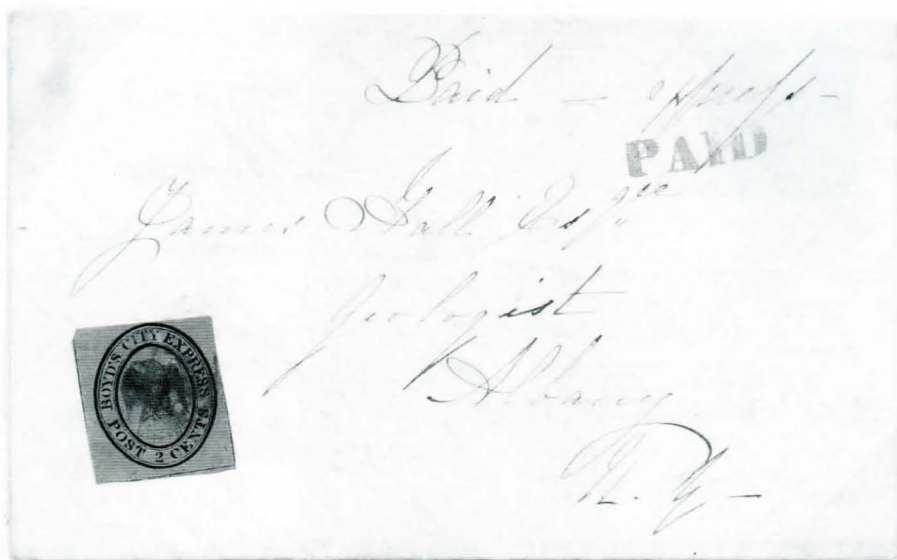 Paid – express –
PAID
James Hall Esqre
Geologist
Albany
N. Y –
BOYD'S CITY EXPRESS
POST 2 CENTS